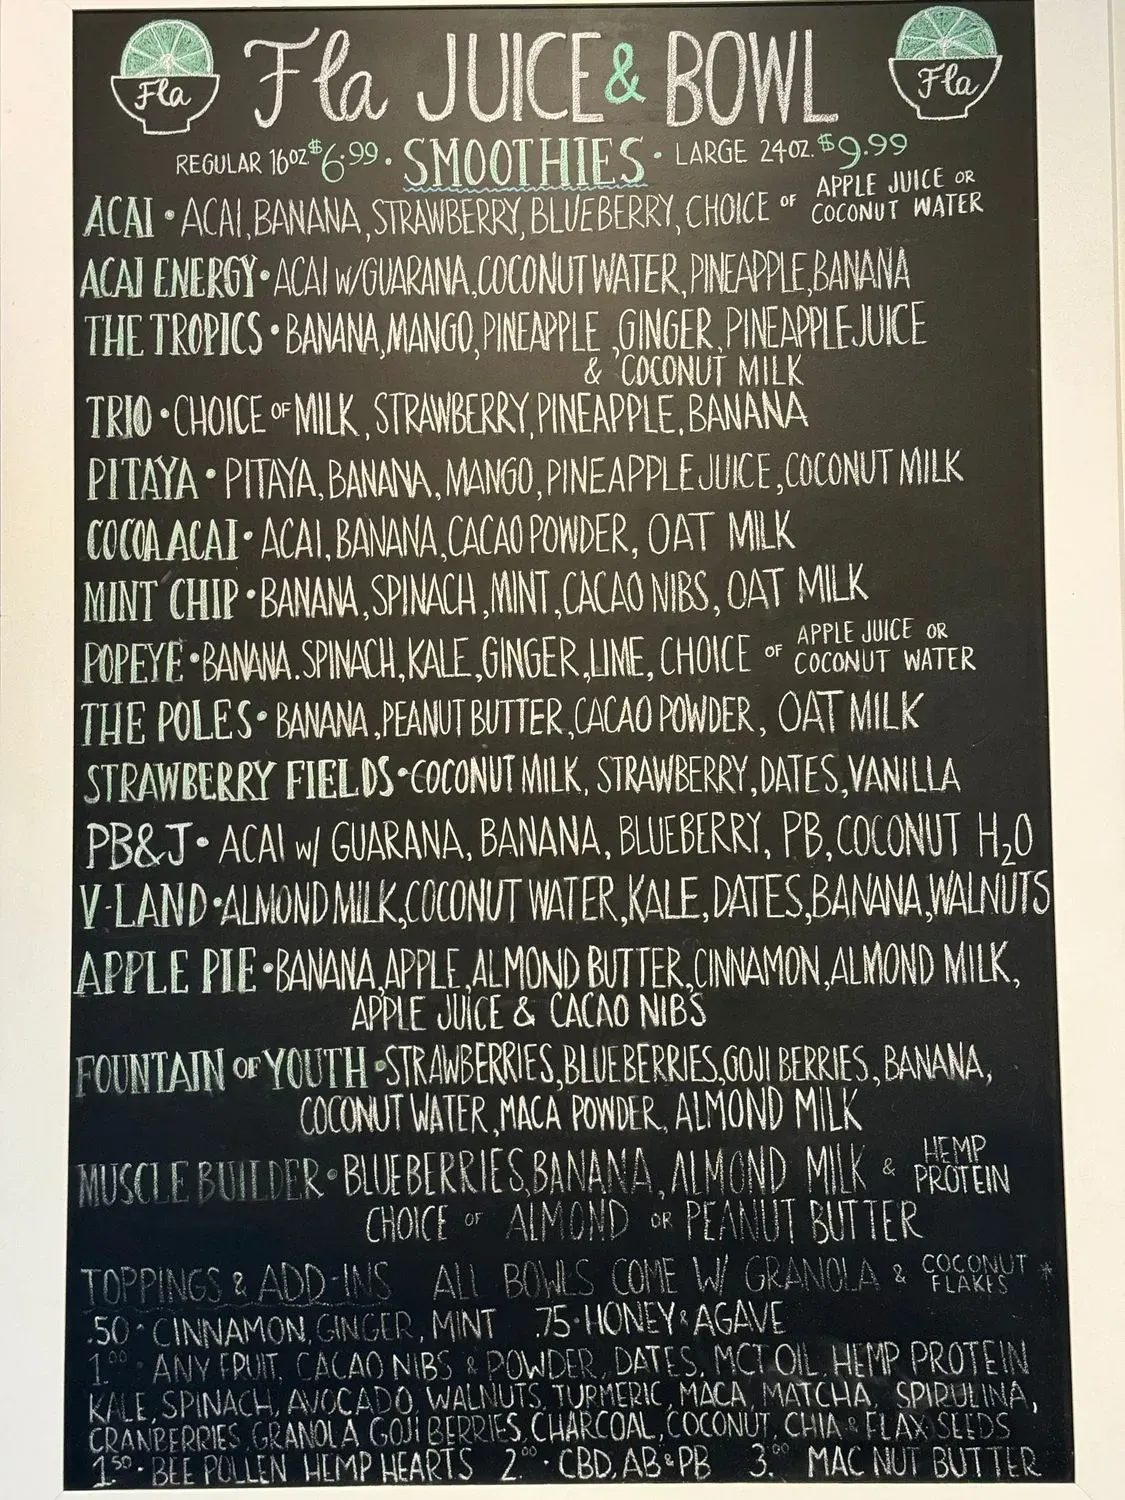 Fla Fla JUICE & BOWL Fla
REGULAR 16OZ $6.99 • SMOOTHIES • LARGE 24OZ. $9.99
ACAI • ACAI, BANANA, STRAWBERRY, BLUEBERRY, CHOICE OF APPLE JUICE OR COCONUT WATER
ACAI ENERGY • ACAI W/GUARANA, COCONUT WATER, PINEAPPLE, BANANA
THE TROPICS • BANANA, MANGO, PINEAPPLE, GINGER, PINEAPPLE JUICE
& COCONUT MILK
TRIO • CHOICE OF MILK, STRAWBERRY, PINEAPPLE, BANANA
PITAYA • PITAYA, BANANA, MANGO, PINEAPPLE JUICE, COCONUT MILK
COCOA ACAI • ACAI, BANANA, CACAO POWDER, OAT MILK
MINT CHIP • BANANA, SPINACH, MINT, CACAO NIBS, OAT MILK
POPEYE • BANANA. SPINACH, KALE, GINGER, LIME, CHOICE OF APPLE JUICE OR COCONUT WATER
THE POLES • BANANA, PEANUT BUTTER, CACAO POWDER, OAT MILK
STRAWBERRY FIELDS • COCONUT MILK, STRAWBERRY, DATES, VANILLA
PB&J • ACAI W/ GUARANA, BANANA, BLUEBERRY, PB, COCONUT H2O
V-LAND • ALMOND MILK, COCONUT WATER, KALE, DATES, BANANA, WALNUTS
APPLE PIE • BANANA, APPLE, ALMOND BUTTER, CINNAMON, ALMOND MILK,
APPLE JUICE & CACAO NIBS
FOUNTAIN OF YOUTH • STRAWBERRIES, BLUEBERRIES, GOJI BERRIES, BANANA,
COCONUT WATER, MACA POWDER, ALMOND MILK
MUSCLE BUILDER • BLUEBERRIES, BANANA, ALMOND MILK & HEMP PROTEIN
CHOICE OF ALMOND OR PEANUT BUTTER
TOPPINGS & ADD-INS ALL BOWLS COME W/ GRANOLA & COCONUT FLAKES *
.50 • CINNAMON, GINGER, MINT .75 • HONEY & AGAVE
1.00 • ANY FRUIT, CACAO NIBS & POWDER, DATES, MCT OIL, HEMP PROTEIN
KALE, SPINACH, AVOCADO, WALNUTS, TURMERIC, MACA, MATCHA, SPIRULINA,
CRANBERRIES, GRANOLA, GOJI BERRIES, CHARCOAL, COCONUT, CHIA & FLAX SEEDS
1.50 • BEE POLLEN HEMP HEARTS 2.00 • CBD, AB & PB 3.00 MAC NUT BUTTER